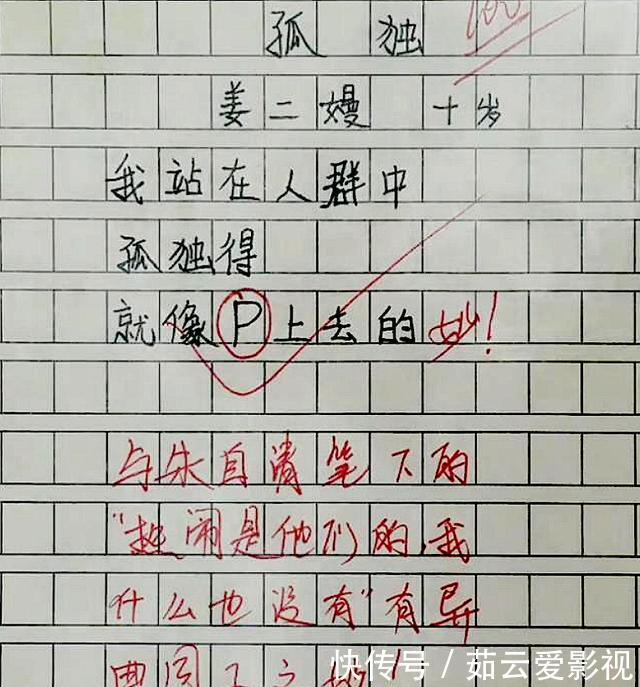 孤独 100
姜二嫚 十岁
我站在人群中
孤独得
就像P上去的 妙！
与朱自清笔下的
“热闹是他们的，我
什么也没有”有异
曲同工之妙！
快传号 / 茹云爱影视